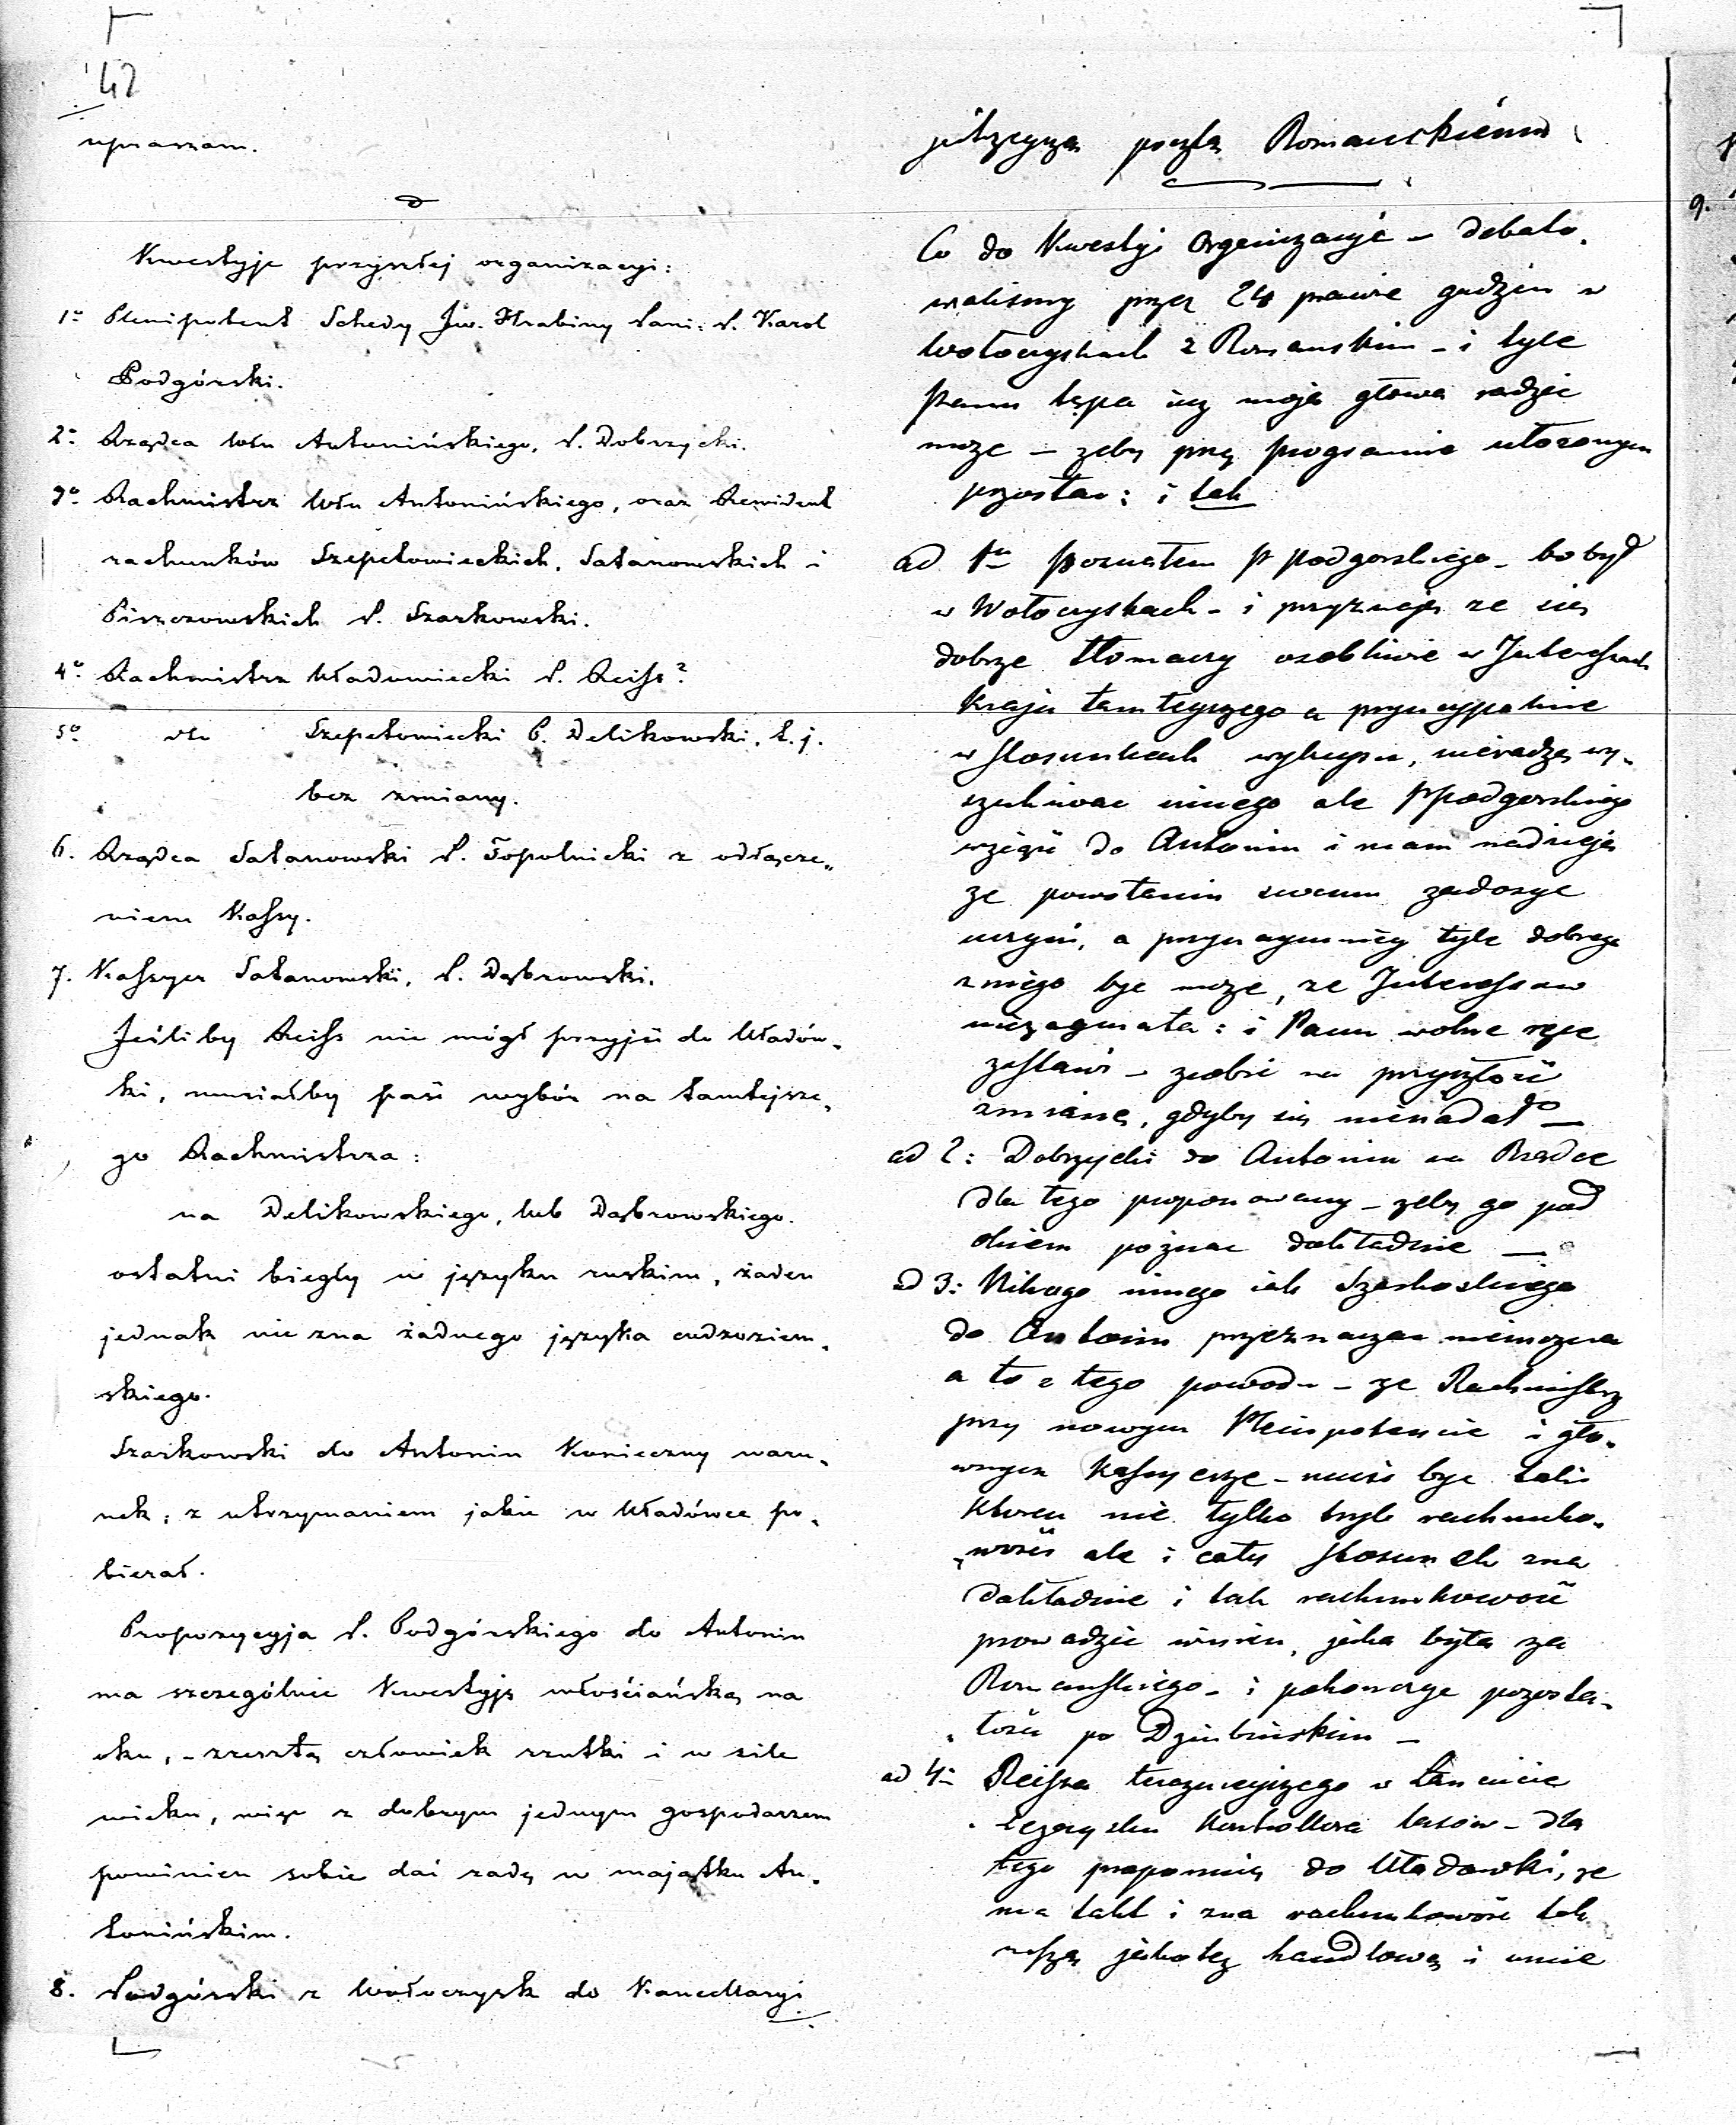 42
upraszam.
Kwestyje przyszłej organizacyi:
1o Plenipotent Schedy Jw. Hrabiny Pani: P. Karol
Podgórski.
2o Rządca Antonińskiego, P. Dobrzycki.
3o Rachmistrz Antonińskiego, oraz Rewident
rachunków Szepetowieckich, Satanowskich i
Piszczowskich P. Szarkowski.
4o Rachmistrz Uładowiecki P. Reiss?
5o Szepetowiecki P. Delikowski, t. j.
bez zmiany.
6. Rządca Satanowski P. Topolnicki z odłącze„
niem Kassy.
7. Kassyer Satanowski, P. Dąbrowski.
Jeśliby Reiss nie mógł przyjść do Uładów„
ki, musiałby paść wybór na tamtejsze„
go Rachmistrza:
na Delikowskiego, lub Dąbrowskiego.
ostatni biegły w języku ruskim, żaden
jednak nie zna żadnego języka cudzoziem„
skiego.
Szarkowski do Antonin Konieczny waru„
nek: z utrzymaniem jakie w Uładówce po„
bierał.
Propozycyja P. Podgórskiego do Antonin
ma szczególnie Kwestyję włościańską na
oku, – zresztą człowiek rzutki i w sile
wieku, więc z dobrym jednym gospodarzem
powinien sobie dać radę w majątku An„
tonińskim.
8. Podgórski z Wołoczysk do Kancellaryi
pocztą Romanskiemu
Co do Kwestyi Organizacyi – debato„
walismy przez 24 prawie godzin w
Wołoczyskach z Romanskim – i tyle
Panu tępa moja głowa radzic
moze – zeby przy programie ułozonym
pozostac: i tak
ad 1o poznałem P Podgorskiego – bo był
w Wołoczyskach – i przyznaję ze się
dobrze tłomaczy osobliwie w Interessach
Kraju tamteyszego a pryncypalnie
w stosunkach wykupu, nieradzę wy„
szukiwac innego ale P Podgorskiego
wziąść do Antonin i mam nadzieję
ze powołaniu swemu zadosyc
uczyni, a przynaymniey tyle dobrego
z niego byc moze, ze Interessow
niezagmatwa: i Panu wolne ręce
zostawi – zrobić na przyszłość
zmianę, gdyby się nienadał –
ad 2: Dobrzycki do Antonin na Rządcę
dla tego proponowany – zeby go pod
okiem poznac dokładnie –
ad 3: Nikogo innego jak Szarkoskiego
do Antonin przeznaczac niemozna
a to z tego powodu – ze Rachmistrz
przy nowym Plenipotencie i gło„
wnym Kassyerze – musi byc taki
Ktoren nie tylko tryb rachunko„
„wości ale i cały stosunek zna
dokładnie i tak rachunkowość
prowadzic winien, jaka była za
Romanskiego – i pokonczyc pozosta„
„łości po Dziubinskim –
ad 4o Reissa terazniejszego w Łancucie
Kontrollora lasów – dla
tego proponuię do Uładowki, ze
ma takt i zna rachunkowość tak
naszą jakotez handlową i umie